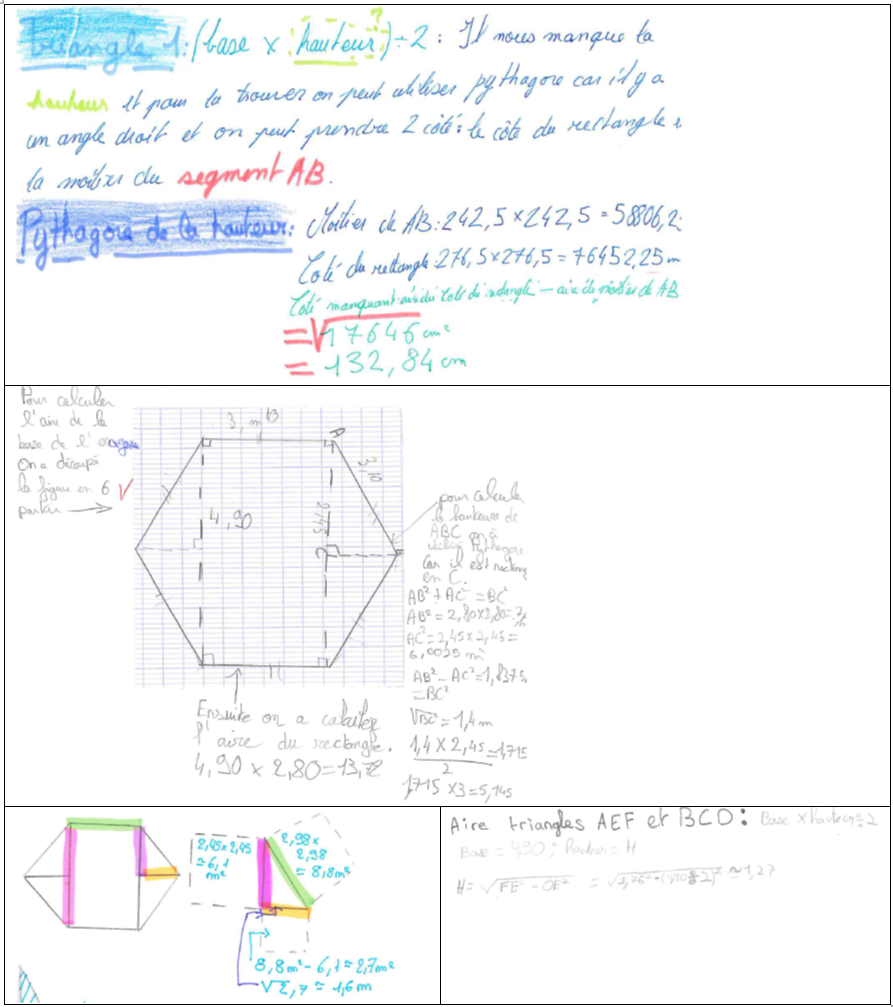 triangle 1: (base x hauteur) ÷ 2 : Il nous manque la
?
hauteur et pour la trouver on peut utiliser pythagore car il y a
un angle droit et on peut prendre 2 côté: le côté du rectangle
la moitier du segment AB.
Pythagore de la hauteur: Moitier de AB: 242,5 x 242,5 = 58806,2
Coté du rectangle: 276,5 x 276,5 = 76452,25 m
Coté manquant: aire du coté du rectangle - aire de moitier de AB
= √17646 cm²
= 132,84 cm
Pour calculer
l'aire de la
base de l'
On a découpé
la figure en 6
partie
3, m B
A
3,10
4,90
2,45
C
pour calculer
la hauteur de
ABC on a
utilisé Pythagore
Car il est rectang
en C.
AB² + AC² = BC²
AB² = 2,80 x 2,80 =
AC² = 2,45 x 2,45 =
6,0025 m²
AB² - AC² = 1,8375
= BC²
√BC² = 1,4 m
1,4 x 2,45 = 1,715
2
1,715 x 3 = 5,145
Ensuite on a calculer
l'aire du rectangle.
4,90 x 2,80 = 13,72
2,45 x 2,45
≈ 6,1
m²
2,98 x
2,98
≈ 8,8 m²
8,8 m² - 6,1 ≈ 2,7 m²
√2,7 ≈ 1,6 m
Aire triangles AEF et BCD : Base x hauteur ÷ 2
Base = 4,90 ; hauteur = H
H = √FE² - OE² = ≈ 1,27